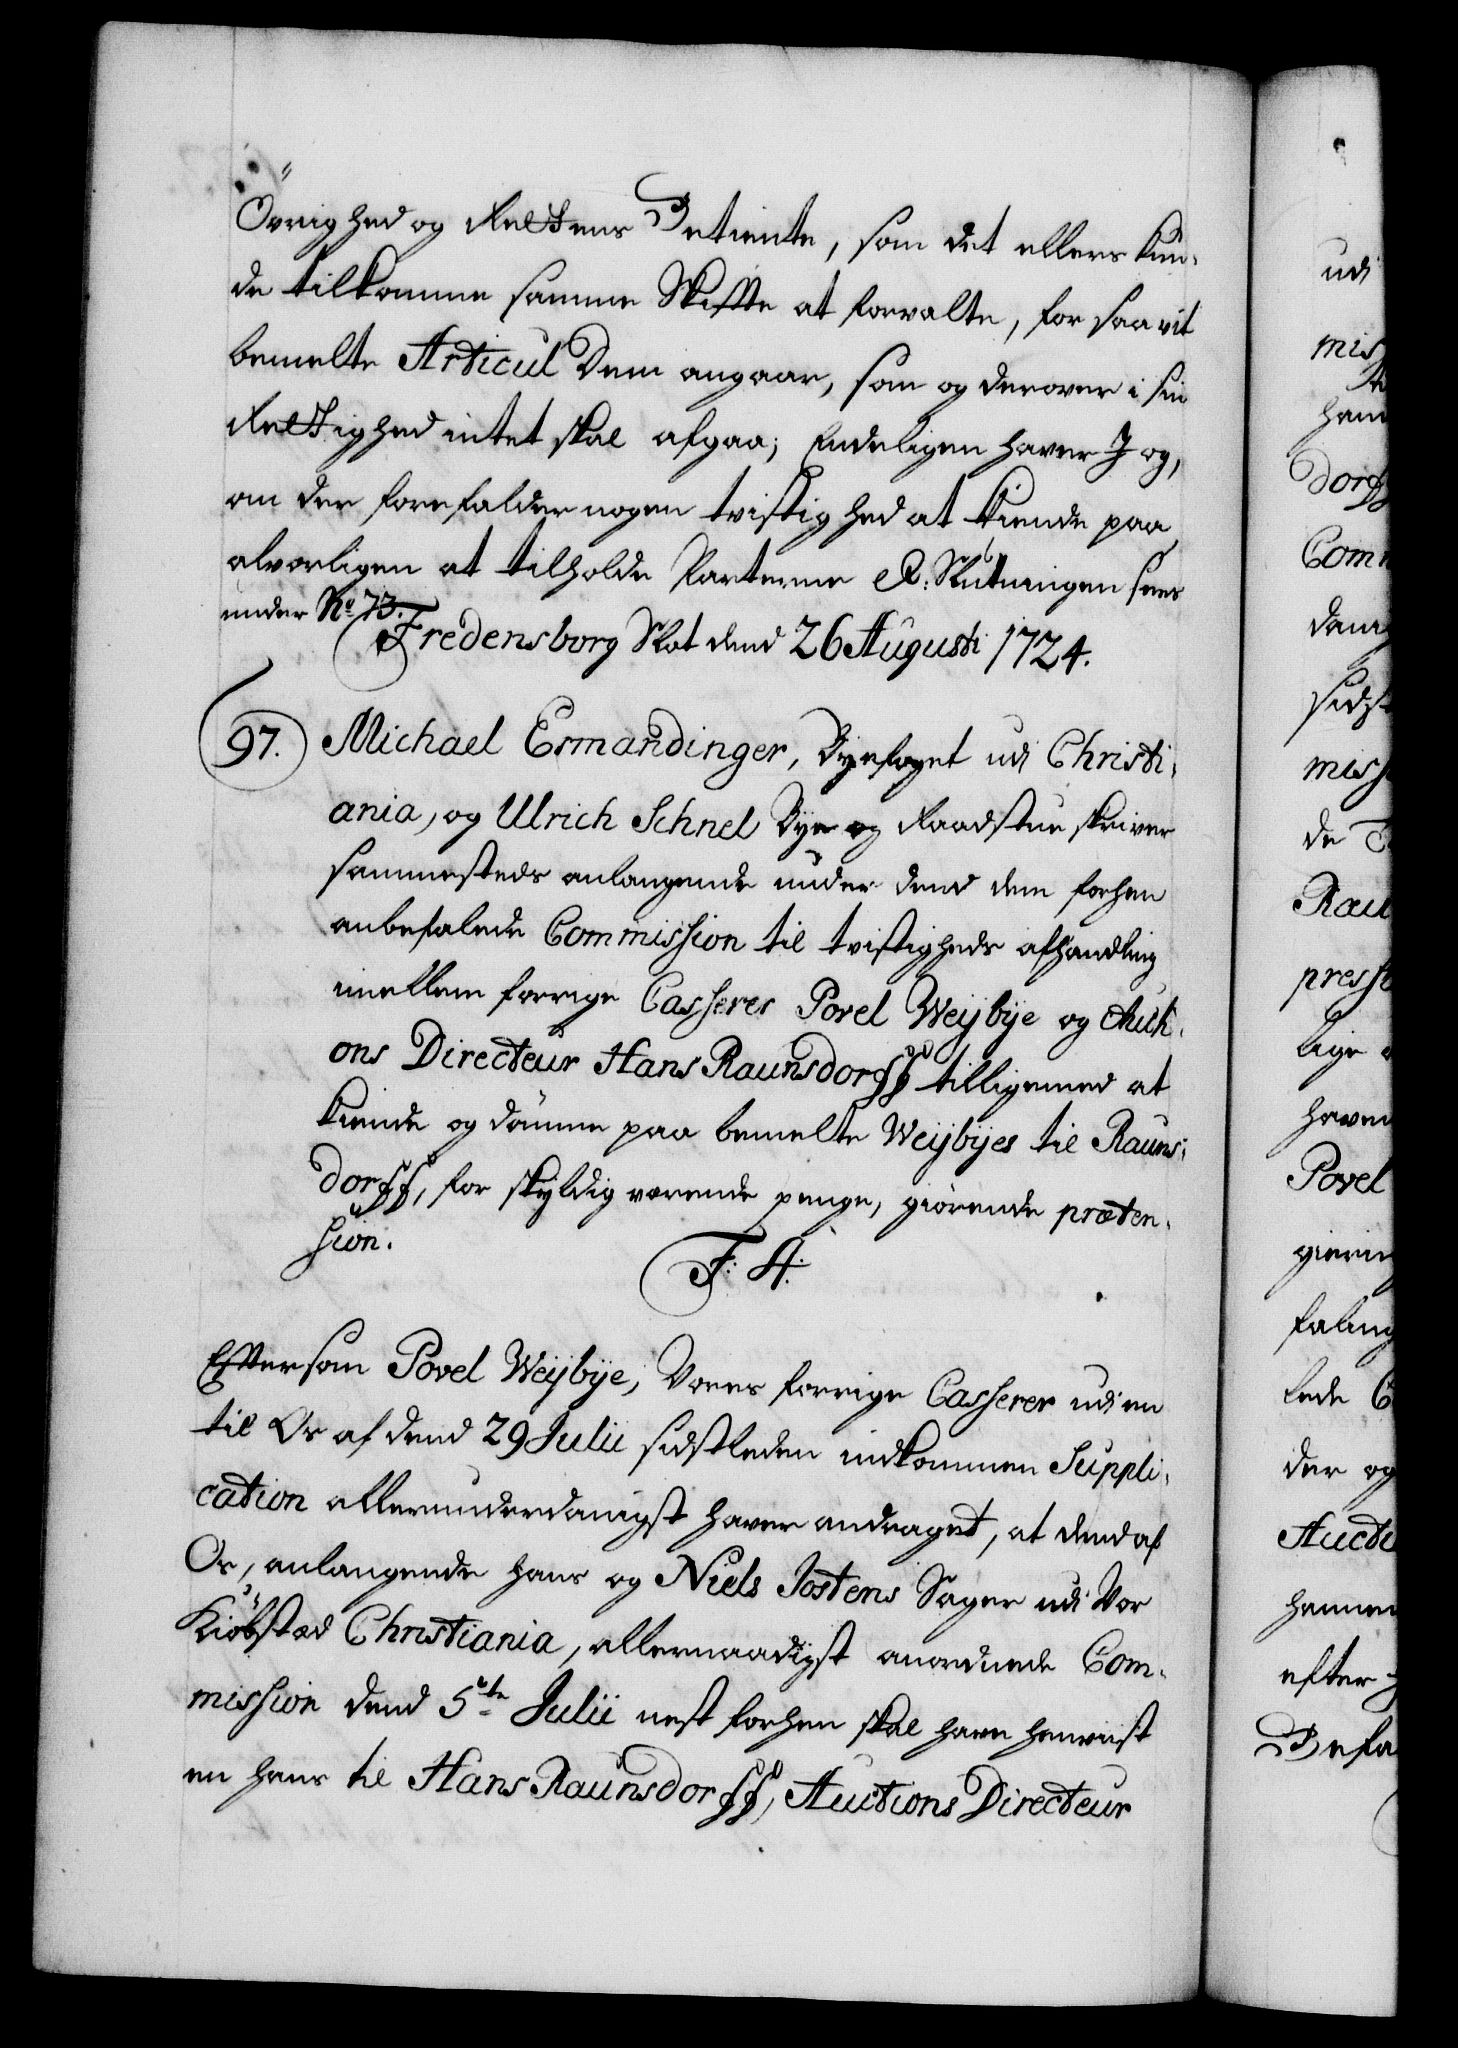 Övrighed og Rettens Betiente, som det ellers kun-
de tilkomme samme Skifte at forvalte, for saa vit
bemelte Articul Dem angaar, som og derover i sin
Rettighed intet skal afgaa; Endeligen haver J og,
om der forefalder nogen tvistighed at kiende paa
alvorligen at tilholde Parterne &: Slutningen sees
under No 73.
Fredensborg Slot dend 26 Augusti 1724.
97. Michael Ermandinger, Byefoget udi Christi-
ania, og Ulrich Schnel Bye og Raadstue skriver
sammesteds anlangende under dend dem forhen
anbefalede Commission til tvistigheds afhandling
imellem forrige Casserer Povel Weijbye og Aucti-
ons Directeur Hans Raunsdorff tilligemed at
kiende og dömme paa bemelte Weijbyes til Rauns-
dorff, for skyldig værende penge, giörende præten-
sion.
F: 4.
Eftersom Povel Weijbye, Vores forrige Casserer udi en
til Os af dend 29 Julii sidstleden indkommen Suppli-
cation allerunderdanigst haver andraget, at dend af
Os, anlangende hans og Niels Jostens Sager udi Vor
Kiöbstæd Christiania, allernaadigst anordnede Com-
mission dend 5te Julii nest forhen skal have henviist
en hans til Hans Raunsdorff, Auctions Directeur
udi
mis
ham
dorff
Com
dem
sidst
miss
de
Rau
press
lige
haven
Povel
gierin
faling
lede C
der og
Auctio
hannem
efter
Befa